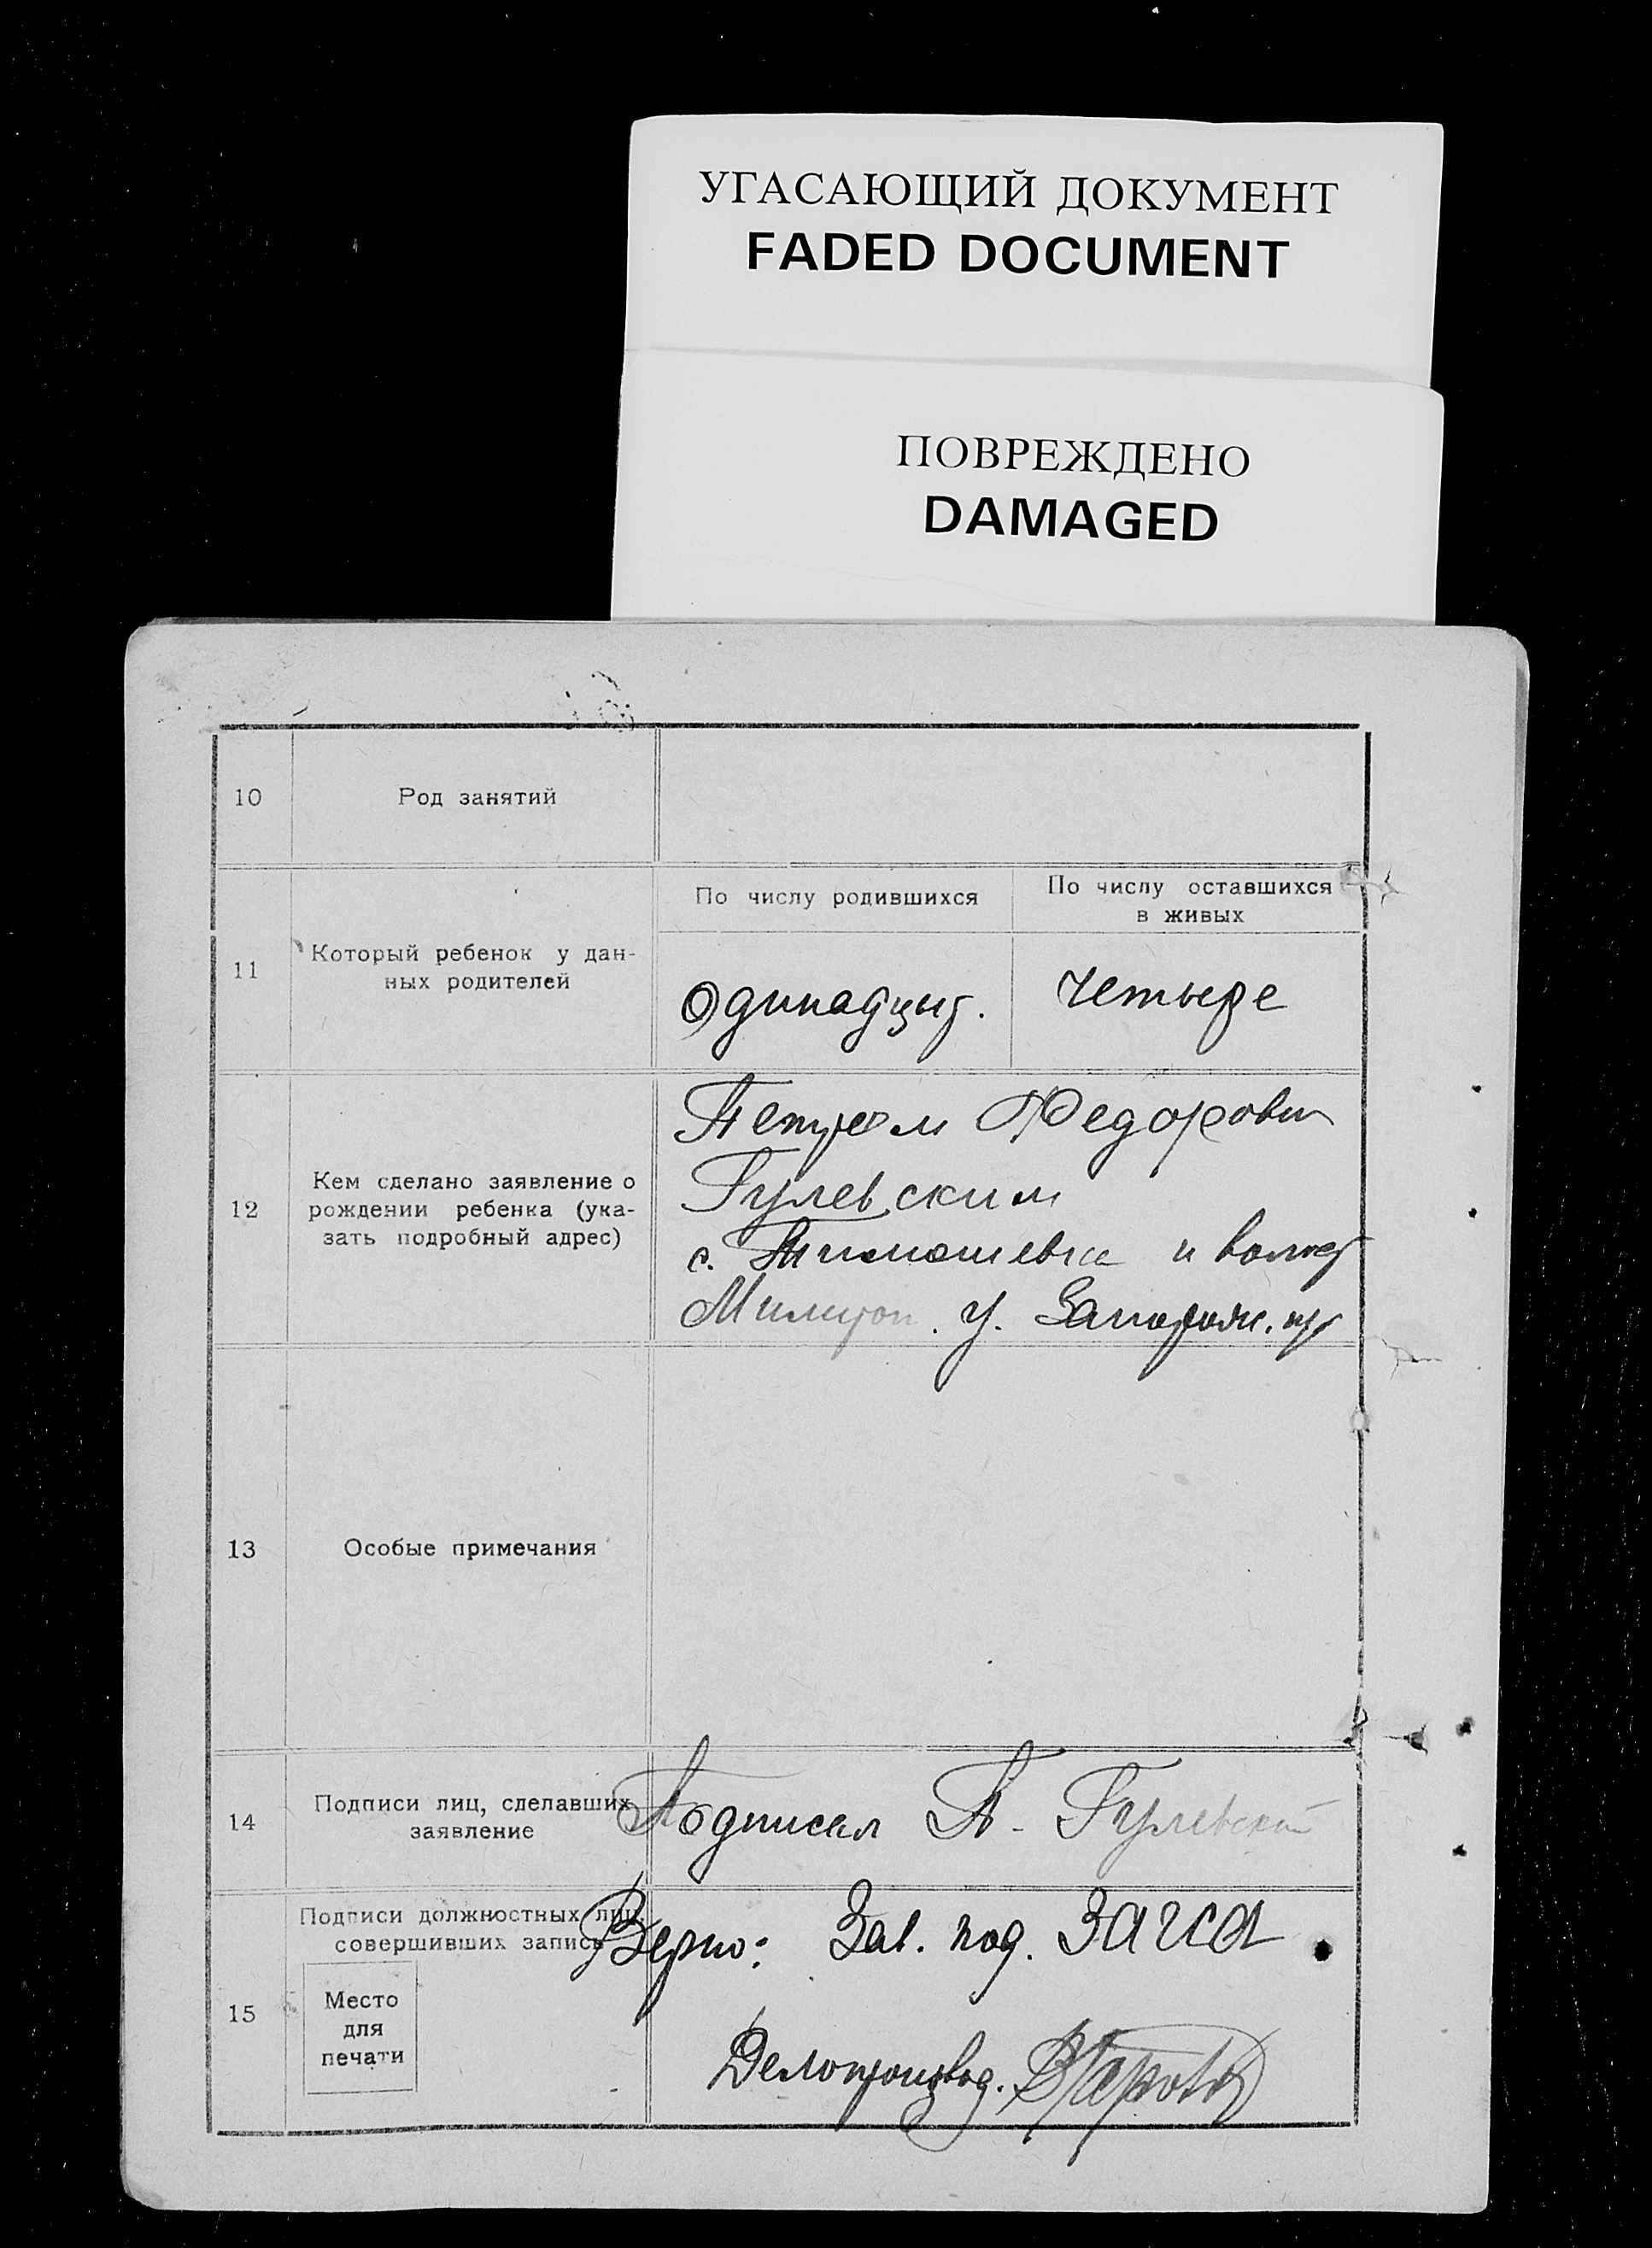 УГАСАЮЩИЙ ДОКУМЕНТ
FADED DOCUMENT
ПОВРЕЖДЕНО
DAMAGED
10
Род занятий
11
Который ребенок у дан-
ных родителей
По числу родившихся
По числу оставшихся
в живых
Одинадцат.
Четыре
12
Кем сделано заявление о
рождении ребенка (ука-
зать подробный адрес)
Петром Федорович
Гулевским
с. Тимошевка и волост
Мелитоп. у. Запорож. губ
13
Особые примечания
14
Подписи лиц, сделавших
заявление
Подписал П. Гулевский
15
Подписи должностных лиц,
совершивших запись
Место
для
печати
Верно: Зав. под. ЗАГСА
Делопроизвод.